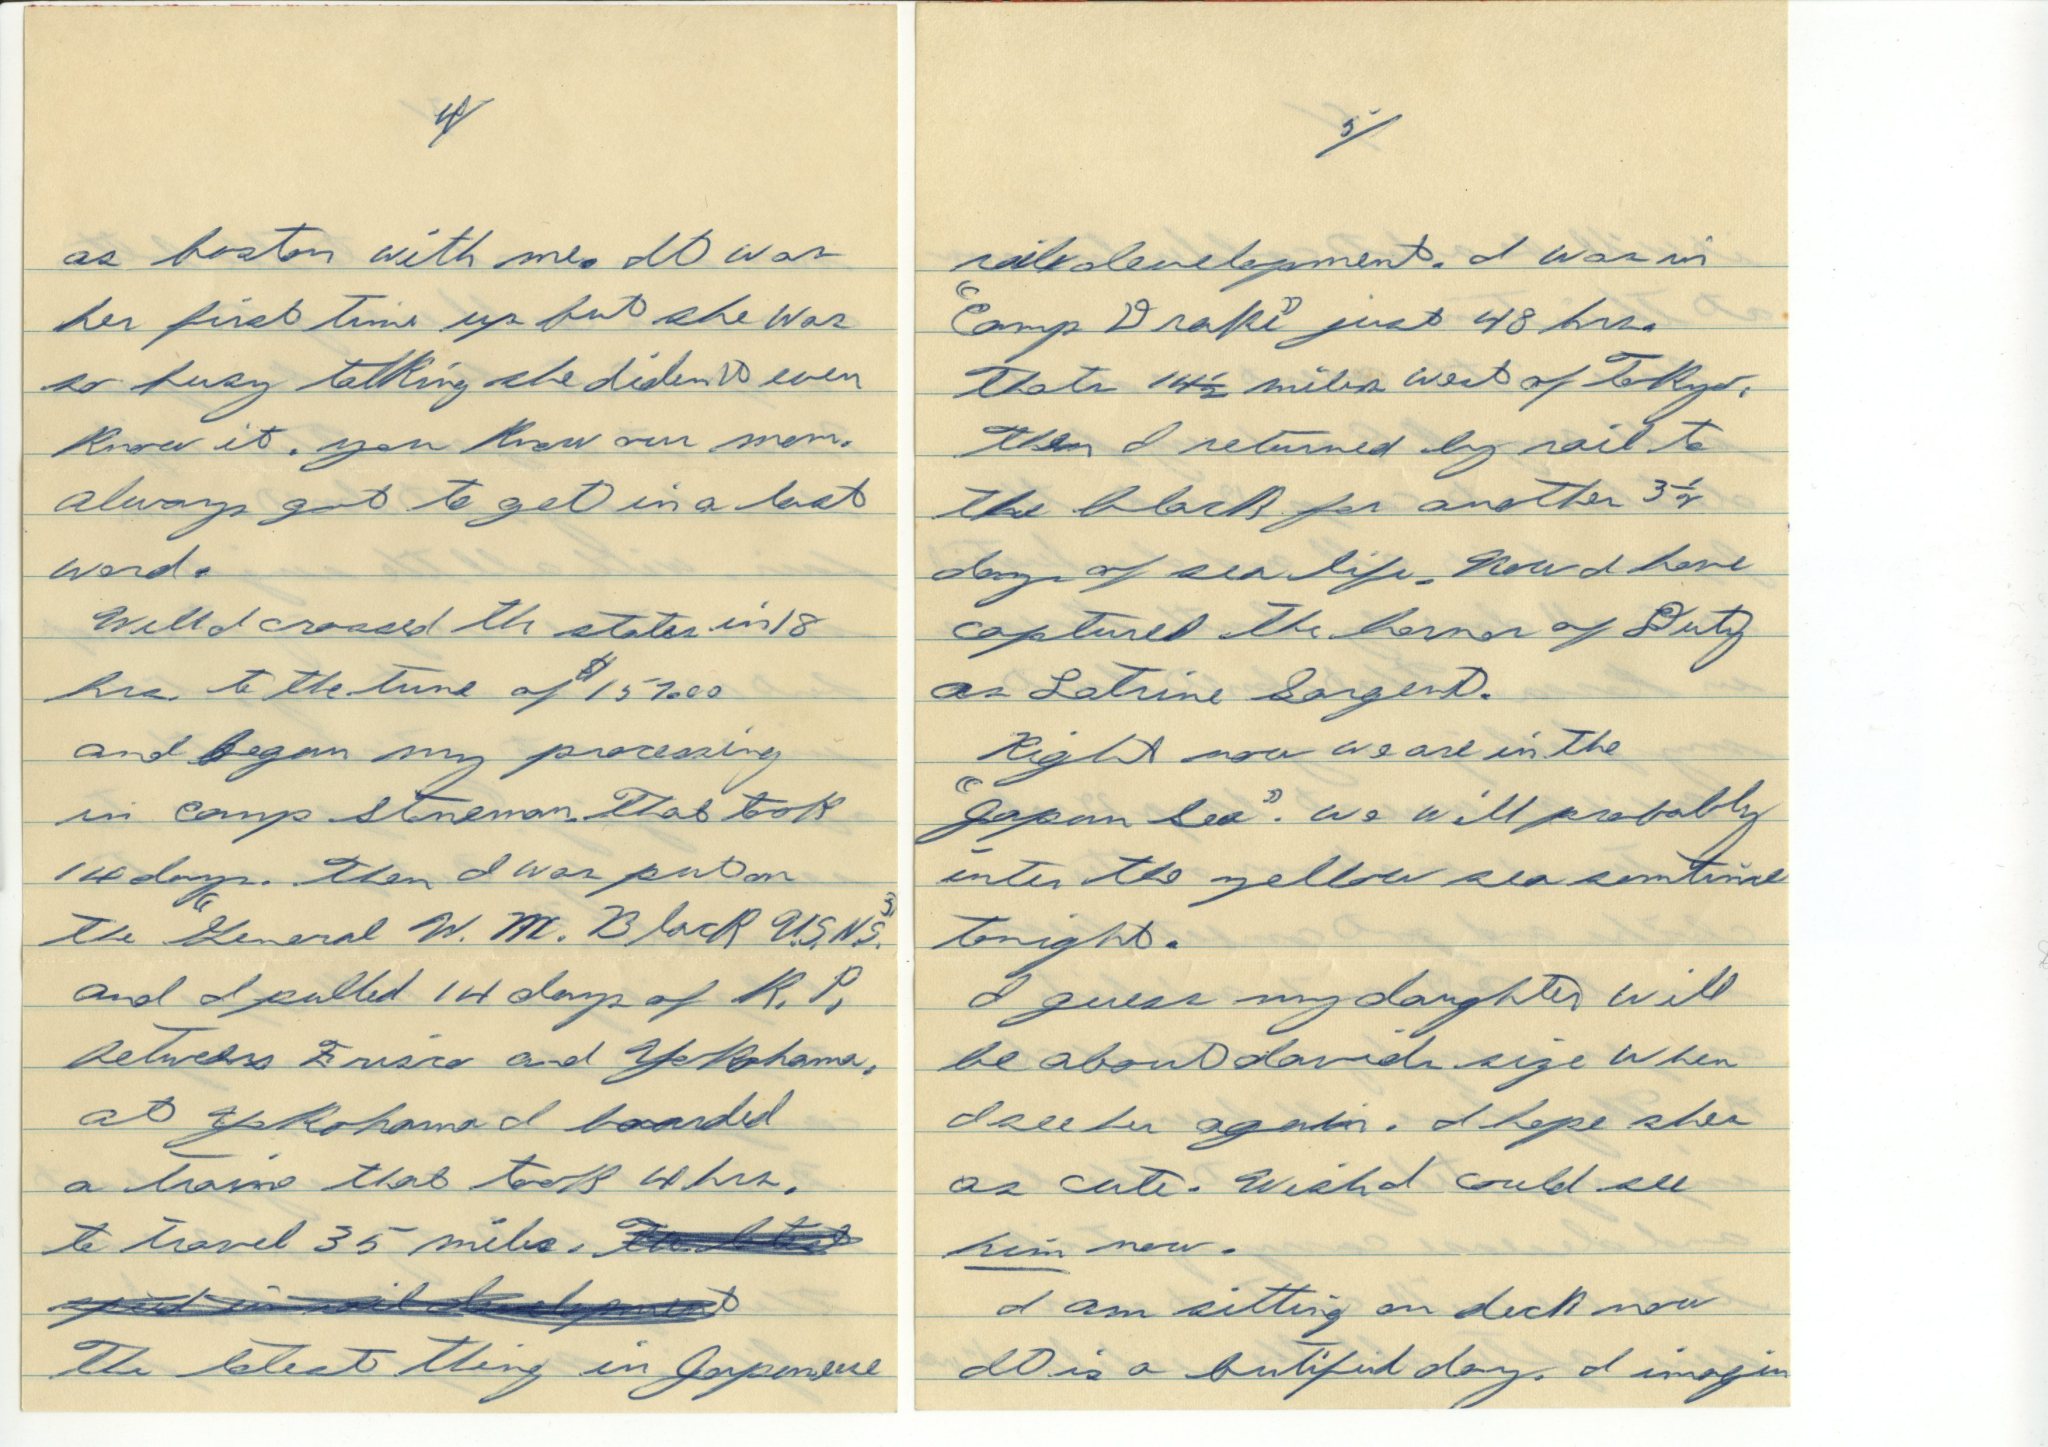 4/
as boston with me. It was
her first time up but she was
so busy talking she diden't even
know it. you know our mom.
always got to get in a last
word.
Well I crossed the states in 18
hrs. to the tune of $157.00
and began my processing
in camp Stoneman. That took
14 days. Then I was put on
the "General W. M. Black U.S.N.S."
and I pulled 14 days of K. P.
between Frisco and Yokohama.
at Yokohama I boarded
a train that took 4 hrs.
to travel 35 miles. The latest
speed in rail development
The latest thing in Japanese
5/
rail development. I was in
"Camp Drake" just 48 hrs.
Thats 14½ miles west of Tokyo.
Then I returned by rail to
the black for another 3½
days of sea life. Now I have
captured the honor of Duty
as Latrine Sargent.
Right now we are in the
"Japan Sea". We will probably
enter the yellow sea somtime
tonight.
I guess my daughter will
be about davids size when
I see her again. I hope shes
as cute. Wish I could see
him now.
I am sitting on deck now
It is a butiful day. I imagin